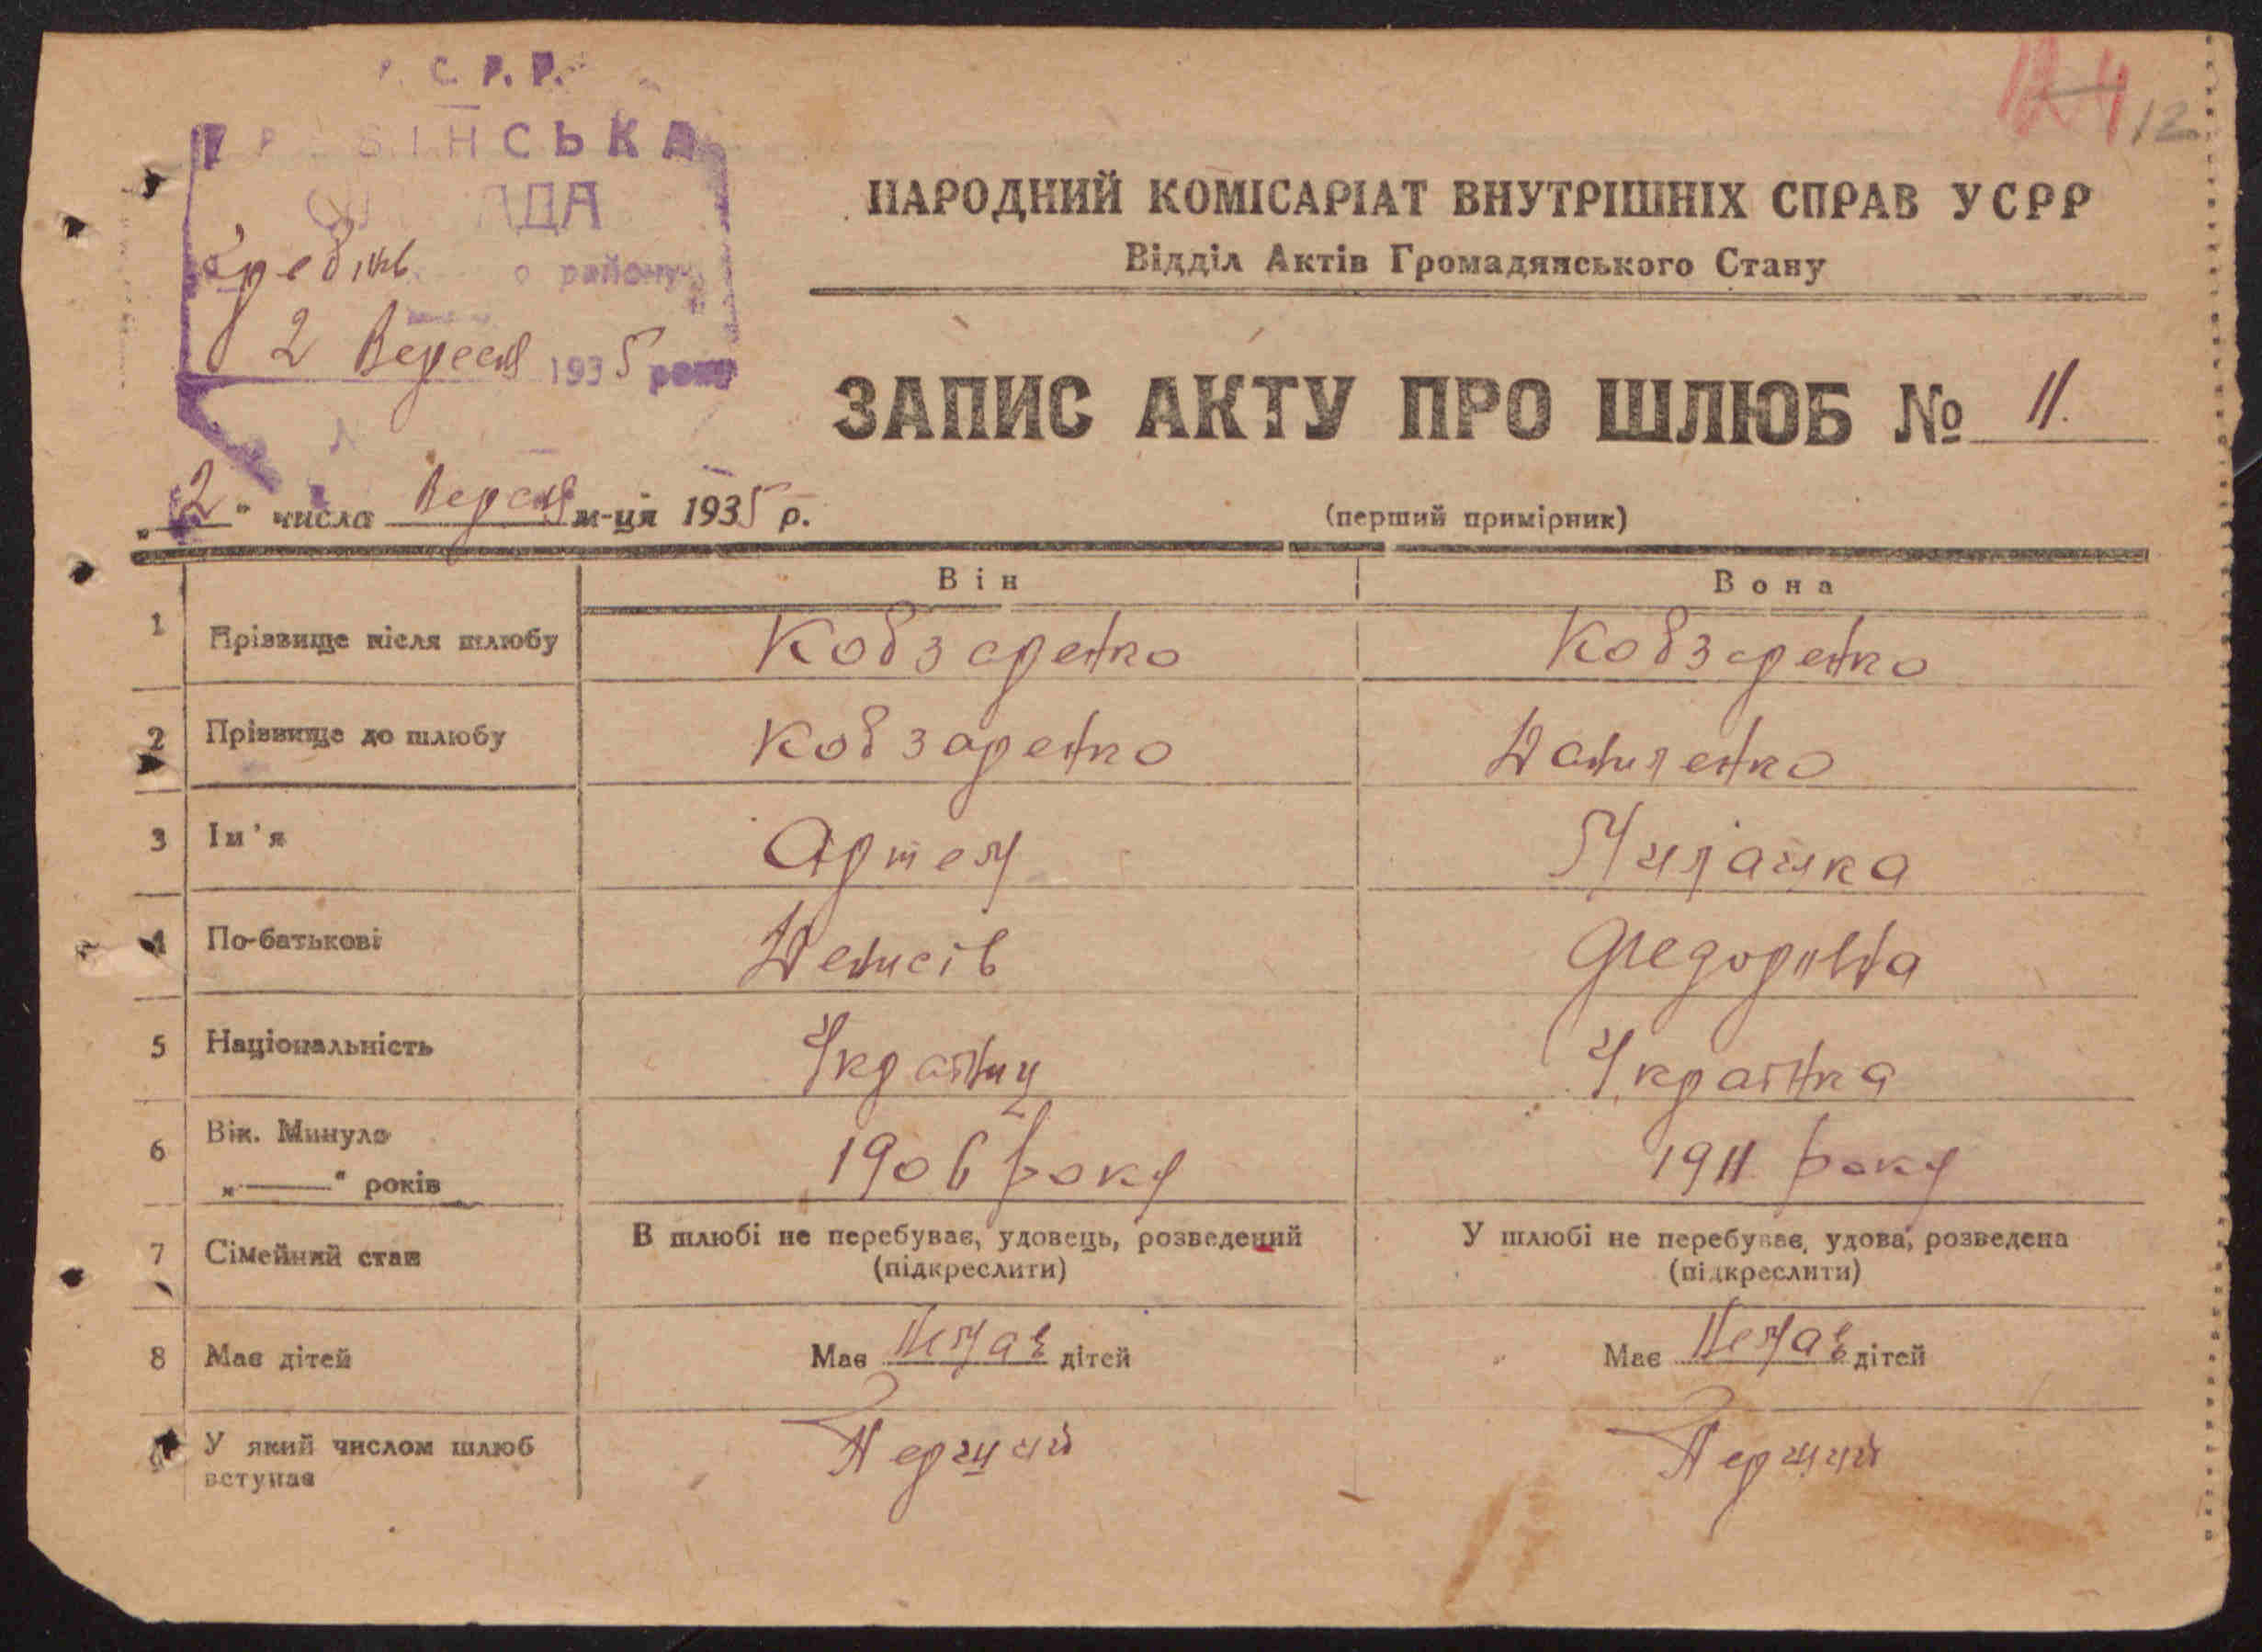 С. Р. Р.
ІНСЬКА
АДА
району
2 Вересня 1935 року
12
НАРОДНИЙ КОМІСАРІАТ ВНУТРІШНІХ СПРАВ УСРР
Відділ Актів Громадянського Стану
ЗАПИС АКТУ ПРО ШЛЮБ № 11.
„2" числа Вересня м-ця 1935 р.
(перший примірник)
Він Вона
1 Прізвище після шлюбу Кобзаренко Кобзаренко
2 Прізвище до шлюбу Кобзаренко Даниленко
3 Ім'я Артем Милашка
4 По-батькові Денисів Федорівна
5 Національність Українц Українка
6 Вік. Минуло 1906 року 1911 року
„—" років
7 Сімейний стан В шлюбі не перебуває, удовець, розведений У шлюбі не перебуває, удова, розведена
(підкреслити) (підкреслити)
8 Має дітей Має Немає дітей Має Немає дітей
У який числом шлюб Перший Перший
вступає